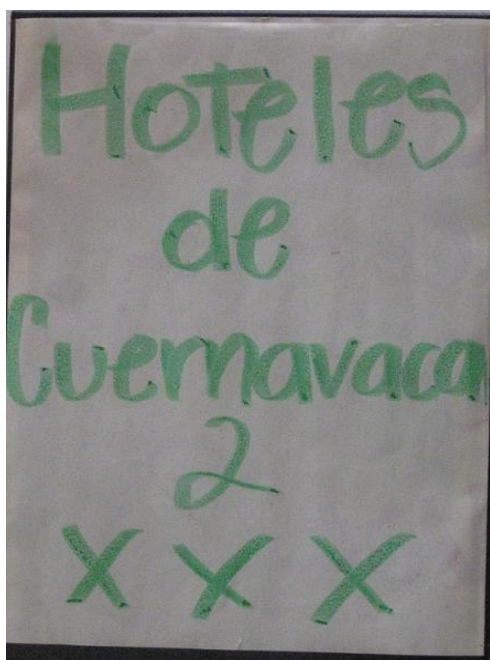 Hoteles
de
Cuernavaca
2
X X X